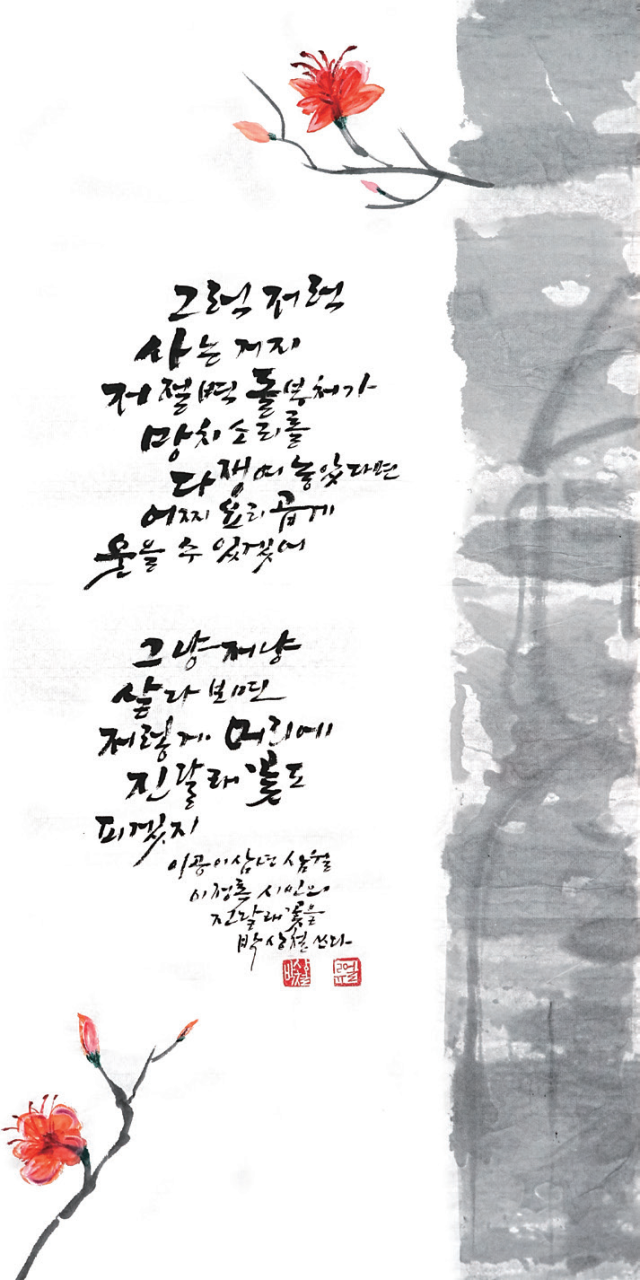 그럭 저럭
사는 거지
저 절벽 돌부처가
망치 소리를
다 쟁여 놓았다면
어찌 요리 곱게
웃을 수 있겠어
그냥 저냥
살다 보면
저렇게 머리에
진달래꽃도
피겠지
이공이삼년 삼월
이정록 시인의
진달래꽃을
박상철 쓰다